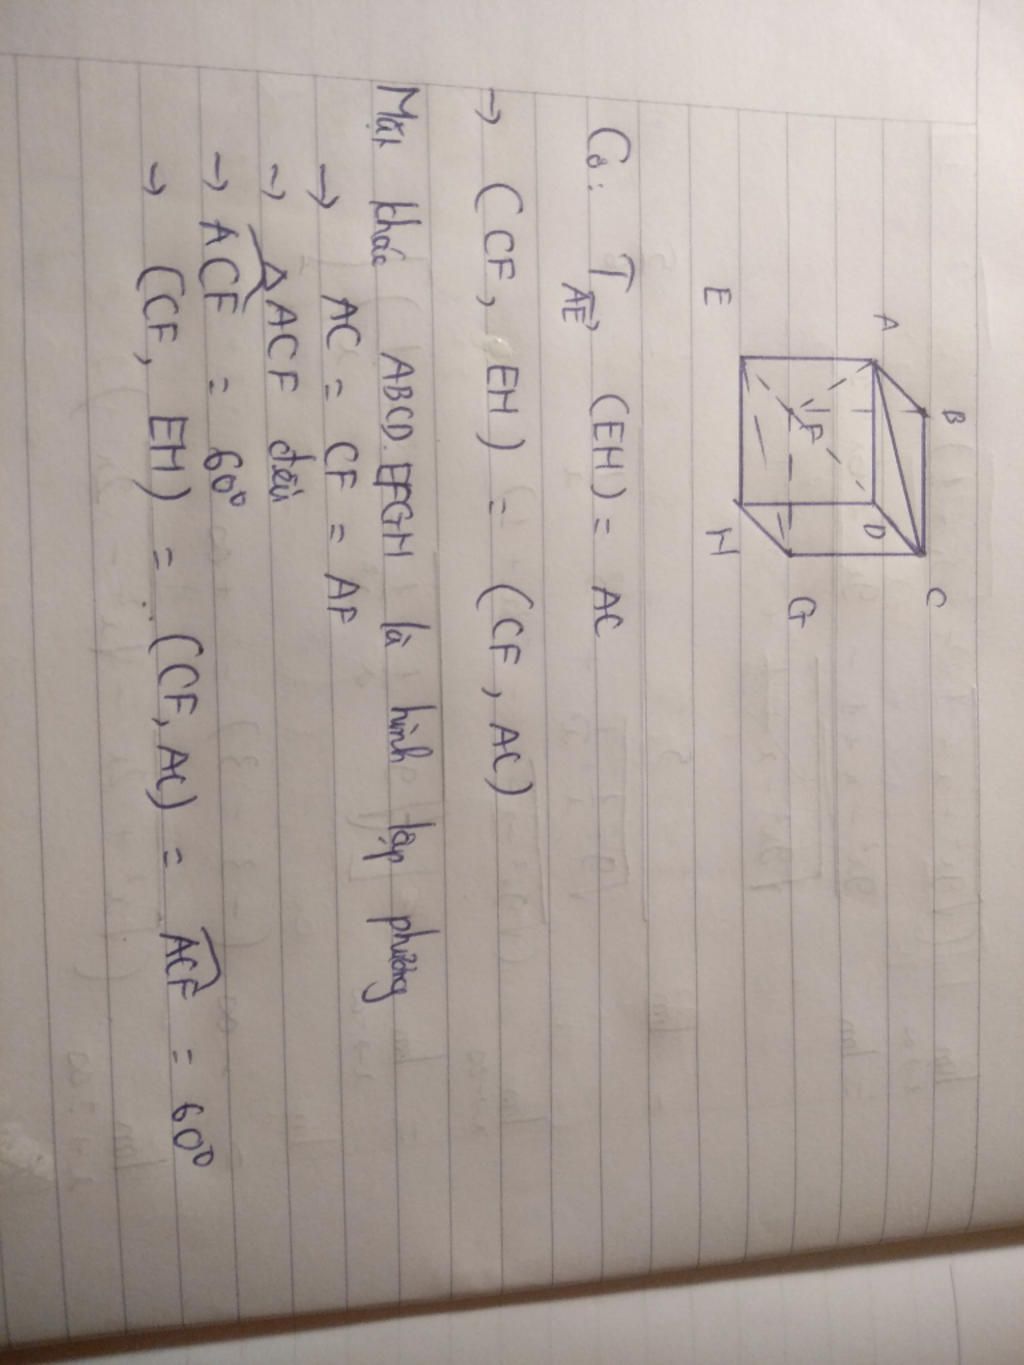 A
B
C
D
E
F
G
H
Có: T AE→ (EH) = AC
→ (CF, EH) = (CF, AC)
Mặt khác ABCD.EFGH là hình lập phương
→ AC = CF = AF
→ ΔACF đều
→ ACF = 60°
→ (CF, EH) = (CF, AC) = ACF = 60°